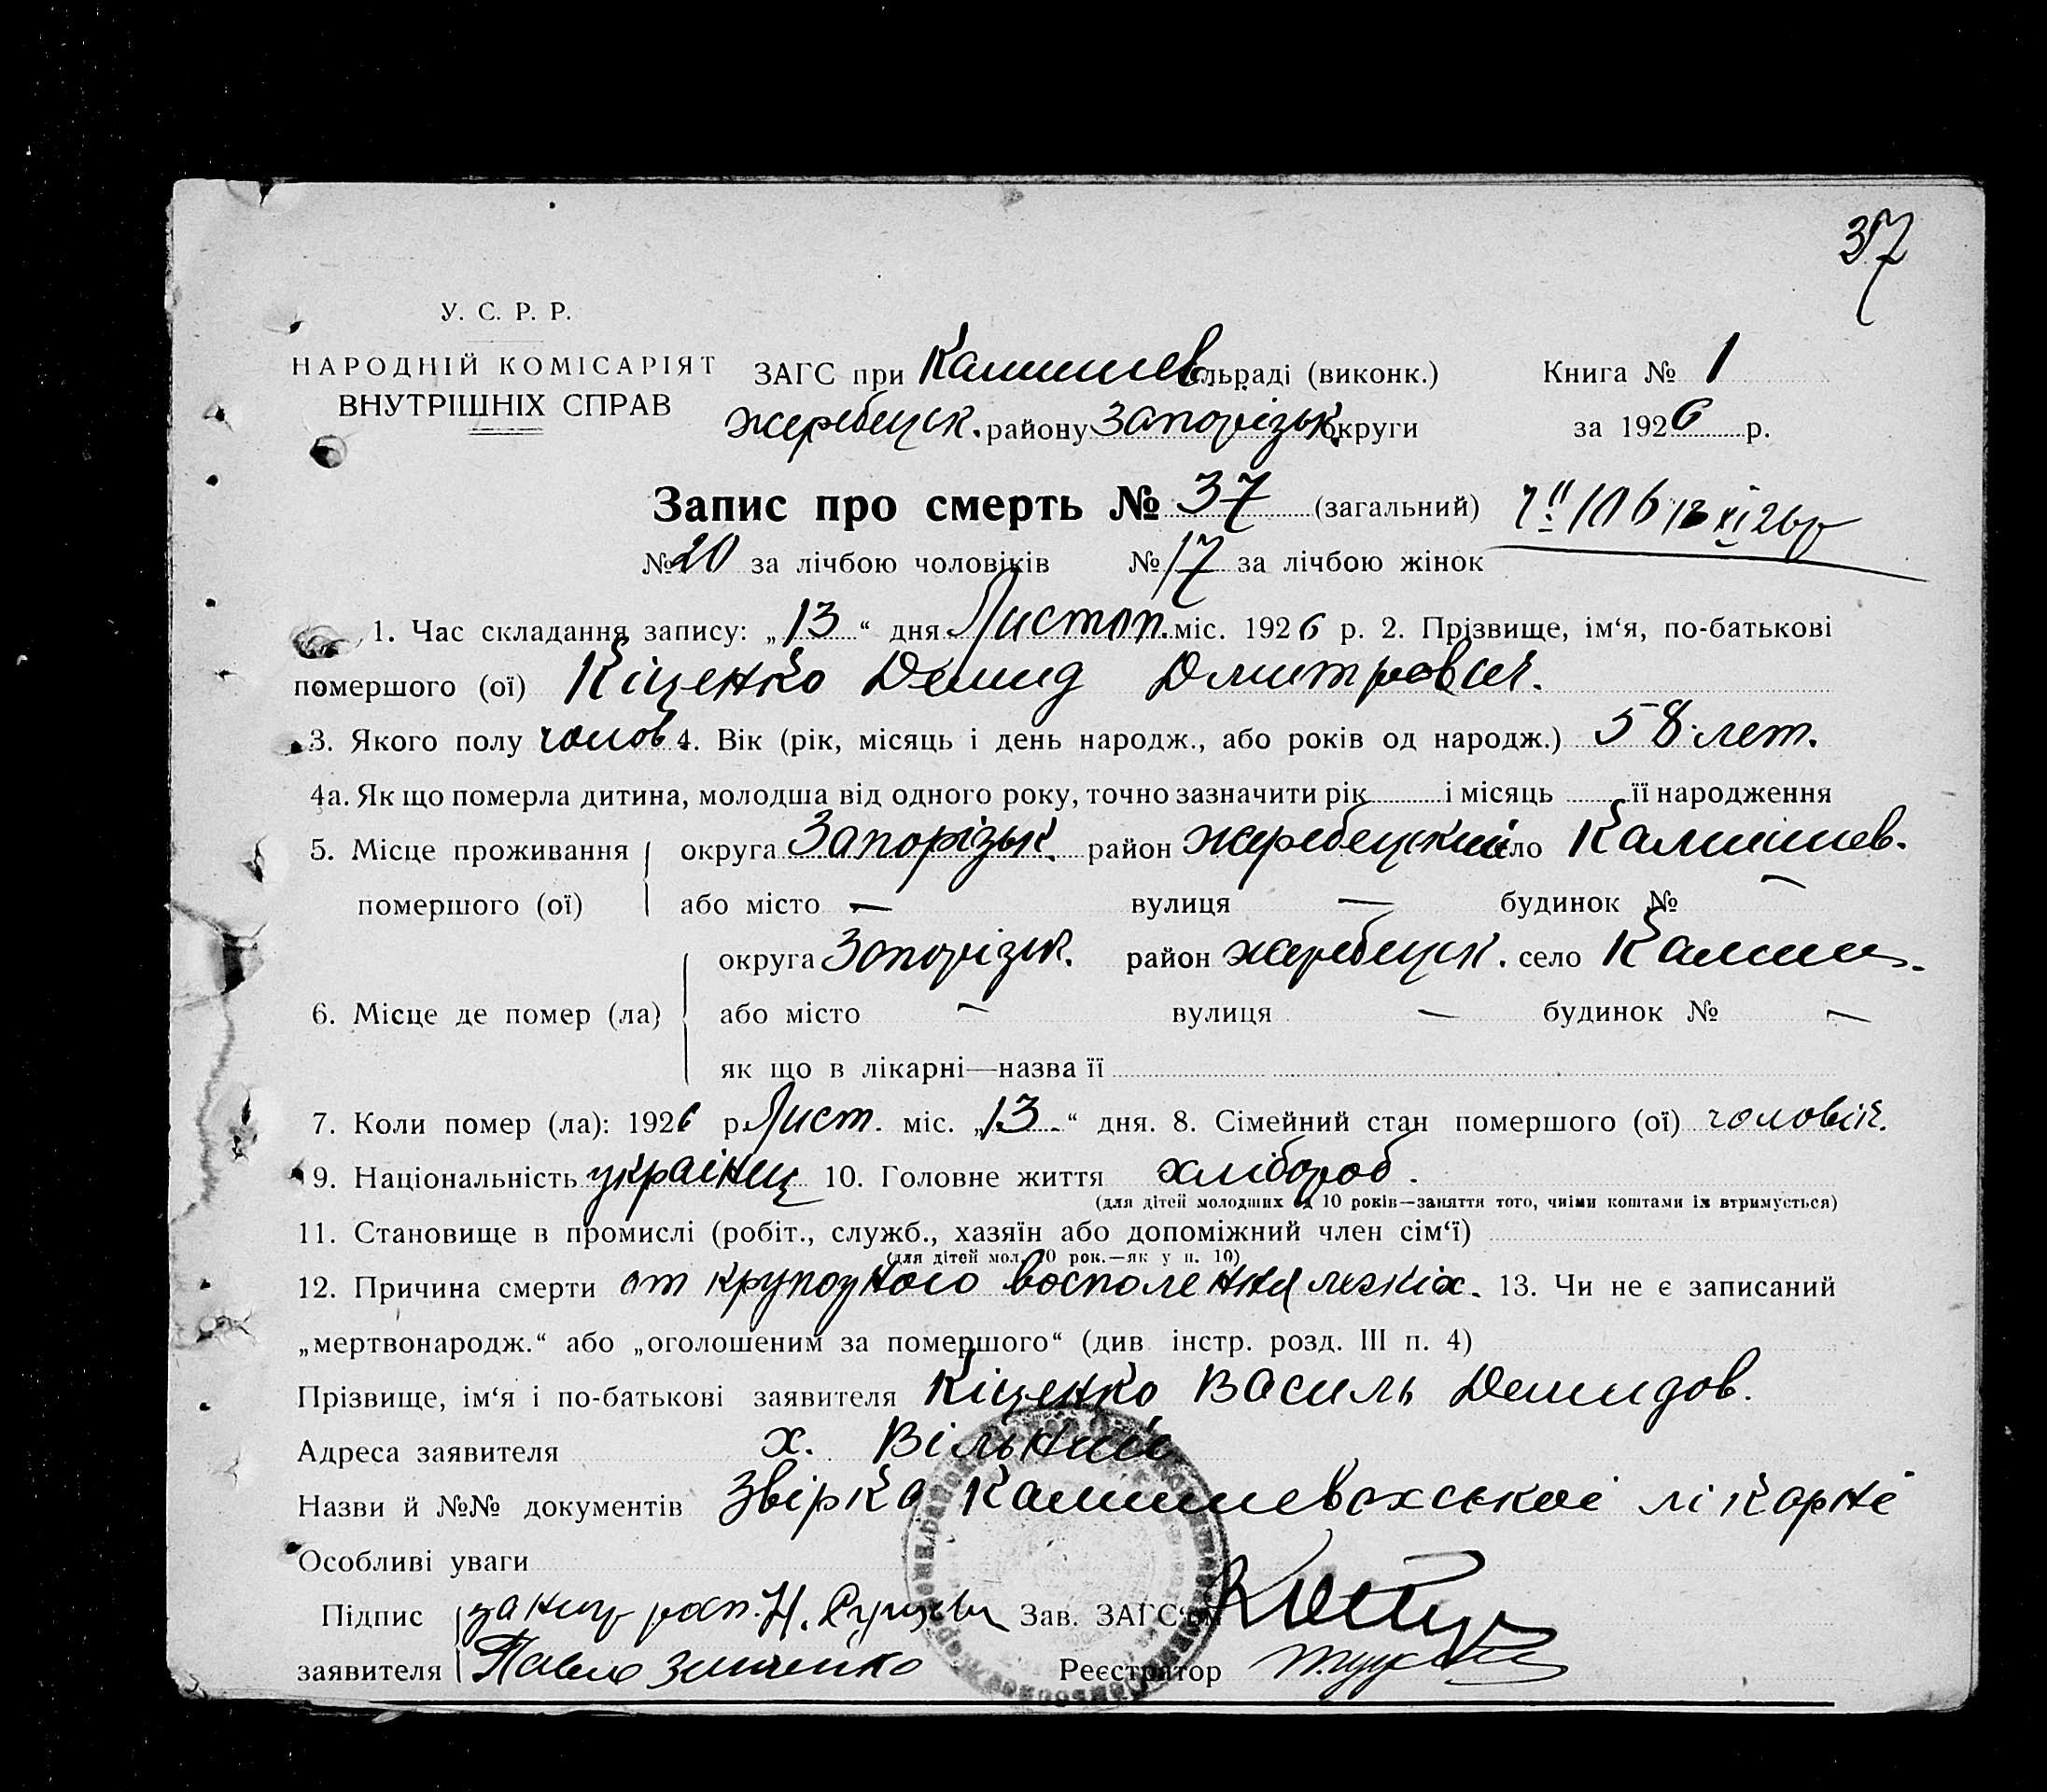 37
У. С. Р. Р.
НАРОДНІЙ КОМІСАРІЯТ
ВНУТРІШНІХ СПРАВ
ЗАГС при Камишев. сільраді (виконк.) Книга № 1
жеребецьк. району Запорізьк. округи за 1926 р.
Запис про смерть № 37 (загальний)
№ 20 за лічбою чоловіків № 17 за лічбою жінок
1. Час складання запису: „13“ дня Листоп. міс. 1926 р. 2. Прізвище, ім‘я, по-батькові
помершого (ої) Кіценко Демид Дмитрович.
3. Якого полу чолов 4. Вік (рік, місяць і день народж., або років од народж.) 58 лет.
4а. Як що померла дитина, молодша від одного року, точно зазначити рік і місяць її народження
5. Місце проживання округа Запорізьк. район жеребецкий село Камишев.
помершого (ої) або місто — вулиця — будинок № —
округа Запорізьк. район жеребецьк. село Камиш.
6. Місце де помер (ла) або місто — вулиця — будинок № —
як що в лікарні—назва її
7. Коли помер (ла): 1926 р. Лист. міс. „13“ дня. 8. Сімейний стан помершого (ої) чоловік.
9. Національність українц 10. Головне життя хлібороб.
(для дітей молодших од 10 років—заняття того, чиїми коштами їх втримується)
11. Становище в промислі (робіт., служб., хазяїн або допоміжний член сім‘ї)
(для дітей мол. 10 рок.—як у п. 10)
12. Причина смерти от крупозного восполення легкіх. 13. Чи не є записаний
„мертвонародж.“ або „оголошеним за помершого“ (див. інстр. розд. III п. 4)
Прізвище, ім‘я і по-батькові заявителя Кіценко Василь Демидов.
Адреса заявителя х. Вільний
Назви й №№ документів Звірка Камишевахської лікарні
Особливі уваги
Підпис за Зав. ЗАГС‘ом
заявителя Павло Зинченко Реєстратор